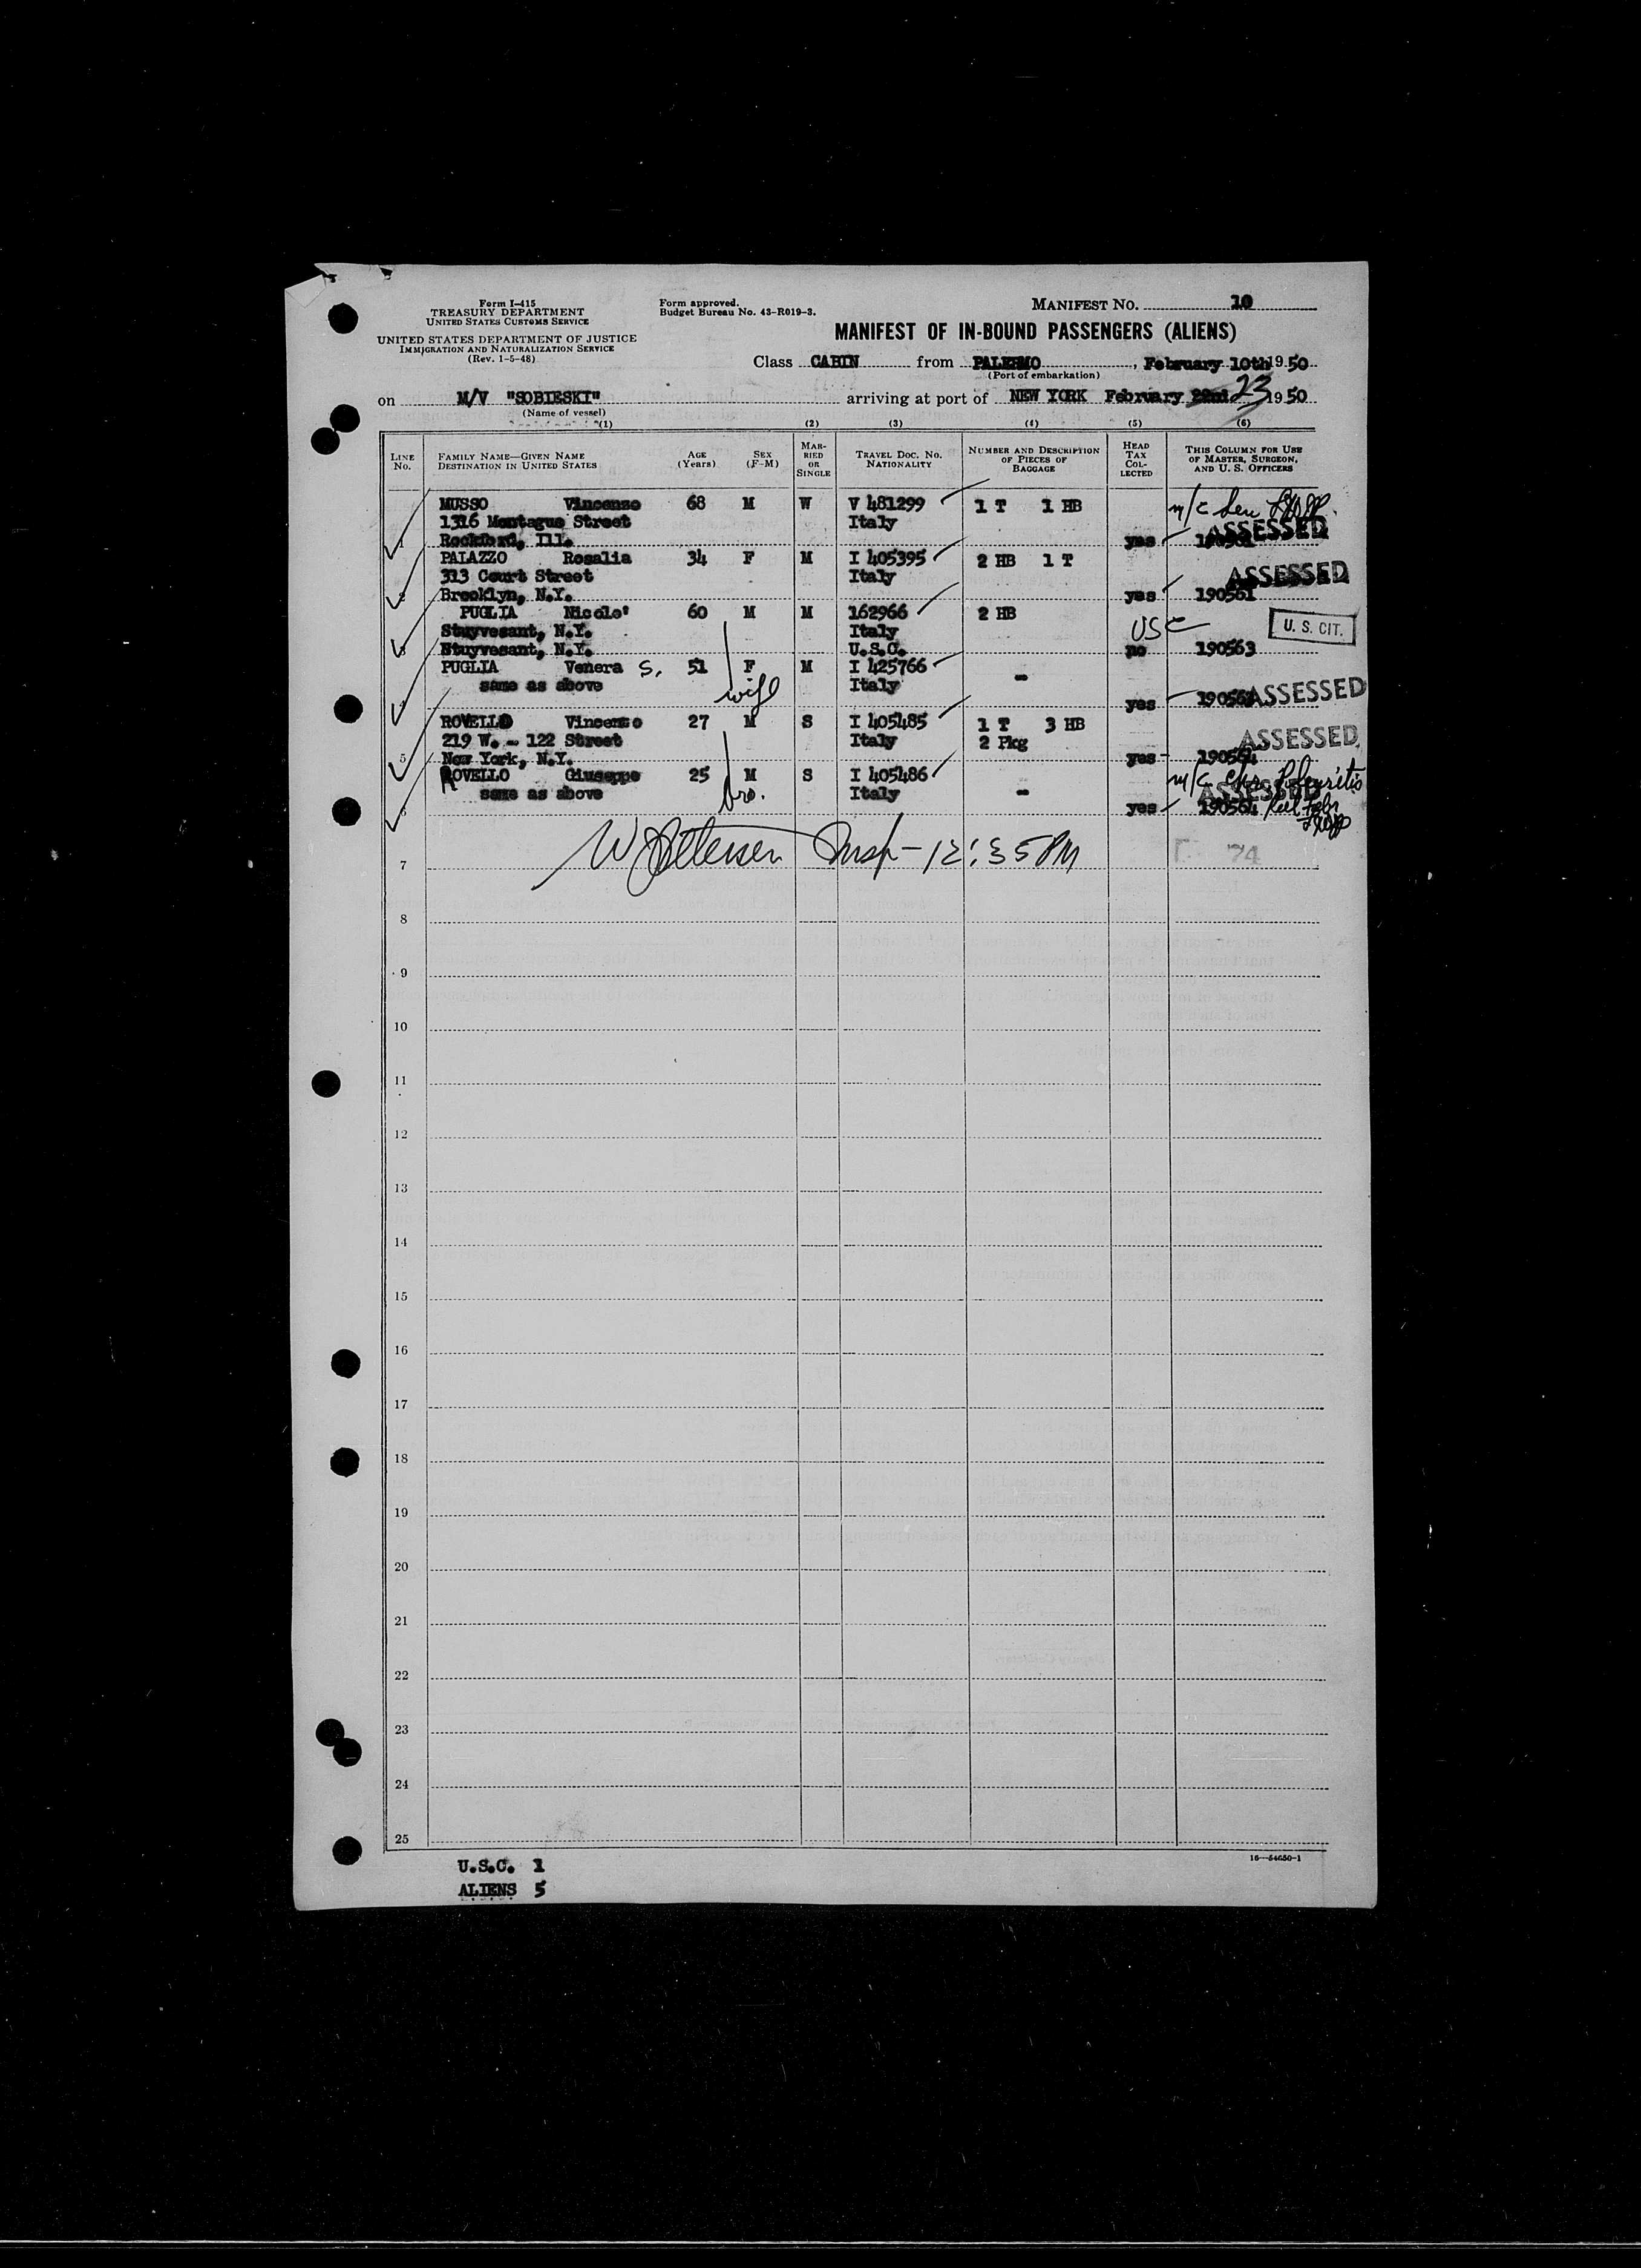 Form I-415
TREASURY DEPARTMENT
UNITED STATES CUSTOMS SERVICE
UNITED STATES DEPARTMENT OF JUSTICE
IMMIGRATION AND NATURALIZATION SERVICE
(Rev. 1-5-48)
Form approved.
Budget Bureau No. 43-R019-3.
MANIFEST NO. 10
MANIFEST OF IN-BOUND PASSENGERS (ALIENS)
Class CABIN from PALERMO, February 10th 1950
(Port of embarkation)
on M/V "SOBIESKI" arriving at port of NEW YORK February 22nd 23 1950
(Name of vessel)
(1) (2) (3) (4) (5) (6)
LINE No. FAMILY NAME—GIVEN NAME DESTINATION IN UNITED STATES AGE (Years) SEX (F-M) MARRIED OR SINGLE TRAVEL DOC. No. NATIONALITY NUMBER AND DESCRIPTION OF PIECES OF BAGGAGE HEAD TAX COLLECTED THIS COLUMN FOR USE OF MASTER, SURGEON, AND U. S. OFFICERS
MUSSO Vincenzo 68 M W V 481299 1 T 1 HB m/c Sen
1316 Montague Street Italy ASSESSED
1 Rockford, Ill. yes
PALAZZO Rosalia 34 F M I 405395 2 HB 1 T
313 Court Street Italy ASSESSED
2 Brooklyn, N.Y. yes 190561
PUGLIA Nicolo' 60 M M 162966 2 HB
Stuyvesant, N.Y. Italy USC U. S. CIT.
3 Stuyvesant, N.Y. U.S.C. no 190563
PUGLIA Venera S. 51 F M I 425766 -
same as above wife Italy
4 yes 190563 ASSESSED
ROVELLO Vincenzo 27 M S I 405485 1 T 3 HB
219 W. - 122 Street Italy 2 Pkg ASSESSED
5 New York, N.Y. yes 190564
ROVELLO Giuseppe 25 M S I 405486 m/c
same as above bro. Italy - ASSESSED
6 yes 190564
Insp - 12:35 PM
7 74
8
9
10
11
12
13
14
15
16
17
18
19
20
21
22
23
24
25
16—54650-1
U.S.C. 1
ALIENS 5